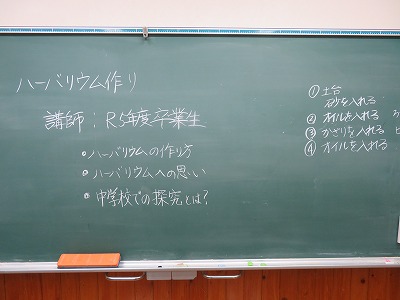 ハーバリウム作り
講師：R5年度卒業生
・ハーバリウムの作り方
・ハーバリウムへの思い
・中学校での探究とは？
① 土台
砂を入れる
② オイルを入れる
③ かざりを入れる
④ オイルを入れる